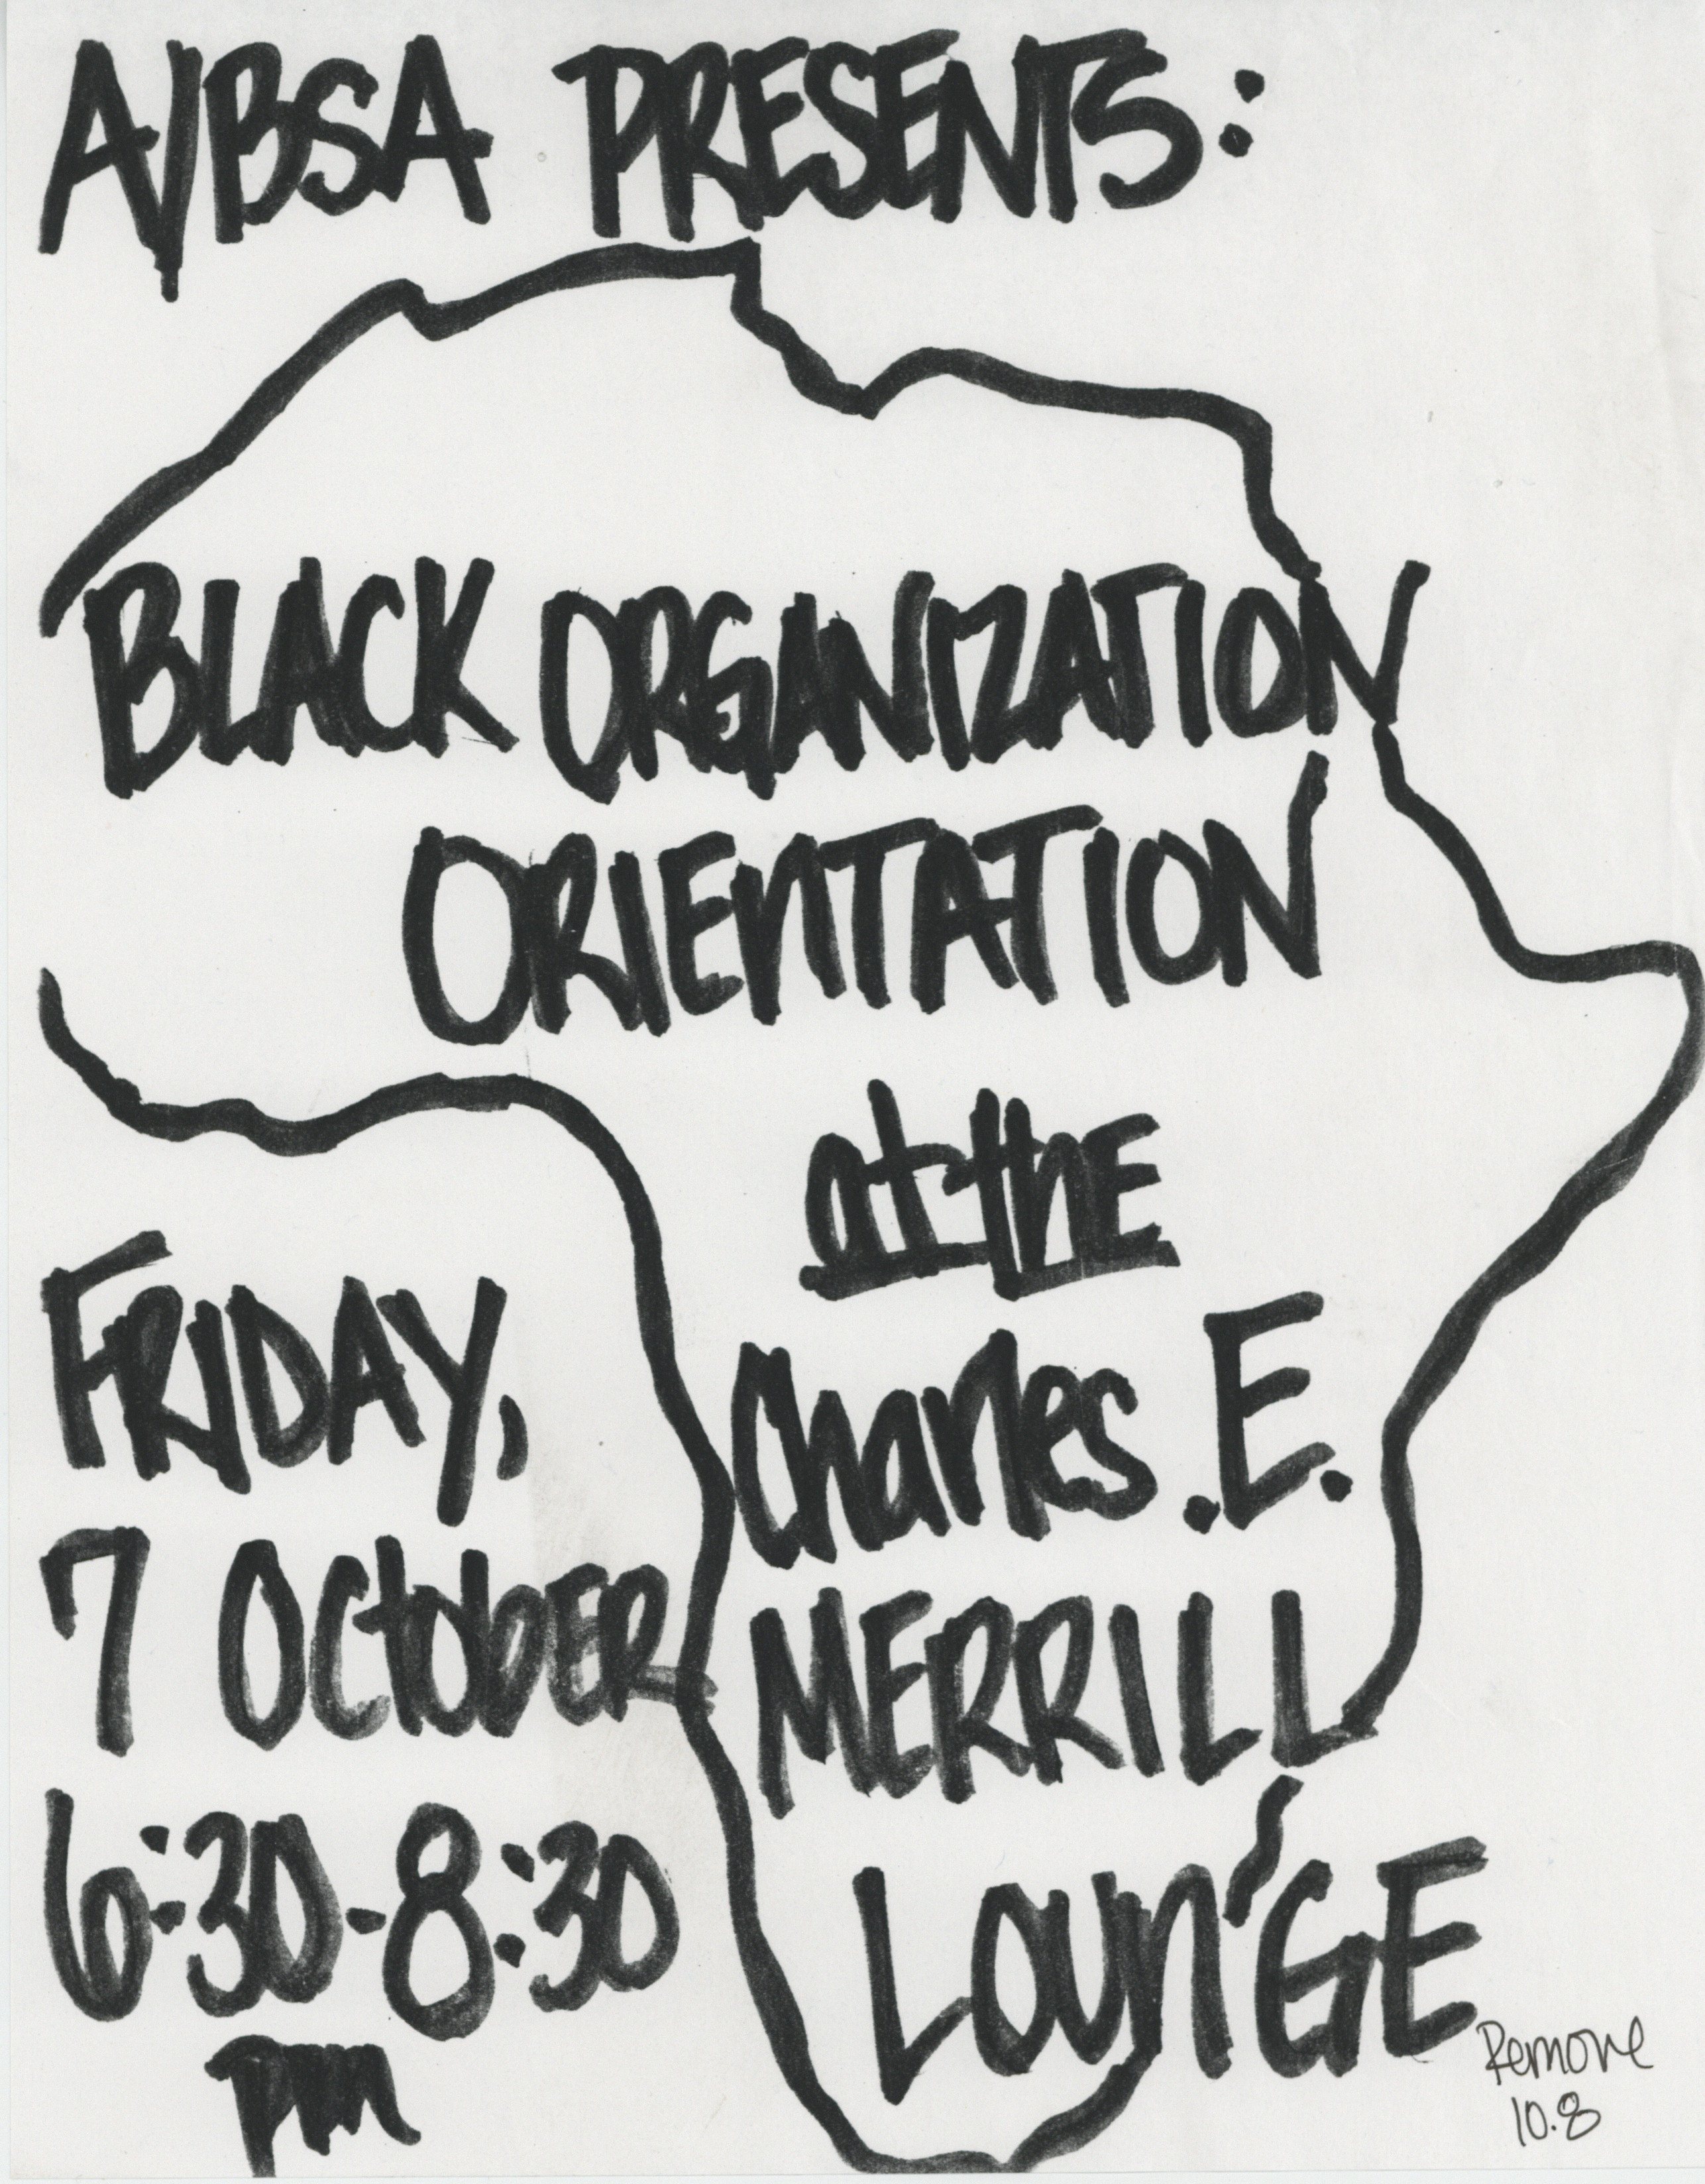 A/BSA PRESENTS:
BLACK ORGANIZATION
ORIENTATION
at the
Charles .E.
MERRILL
LOUNGE
FRIDAY,
7 OctobER
6:30-8:30
pm
Remove
10.8